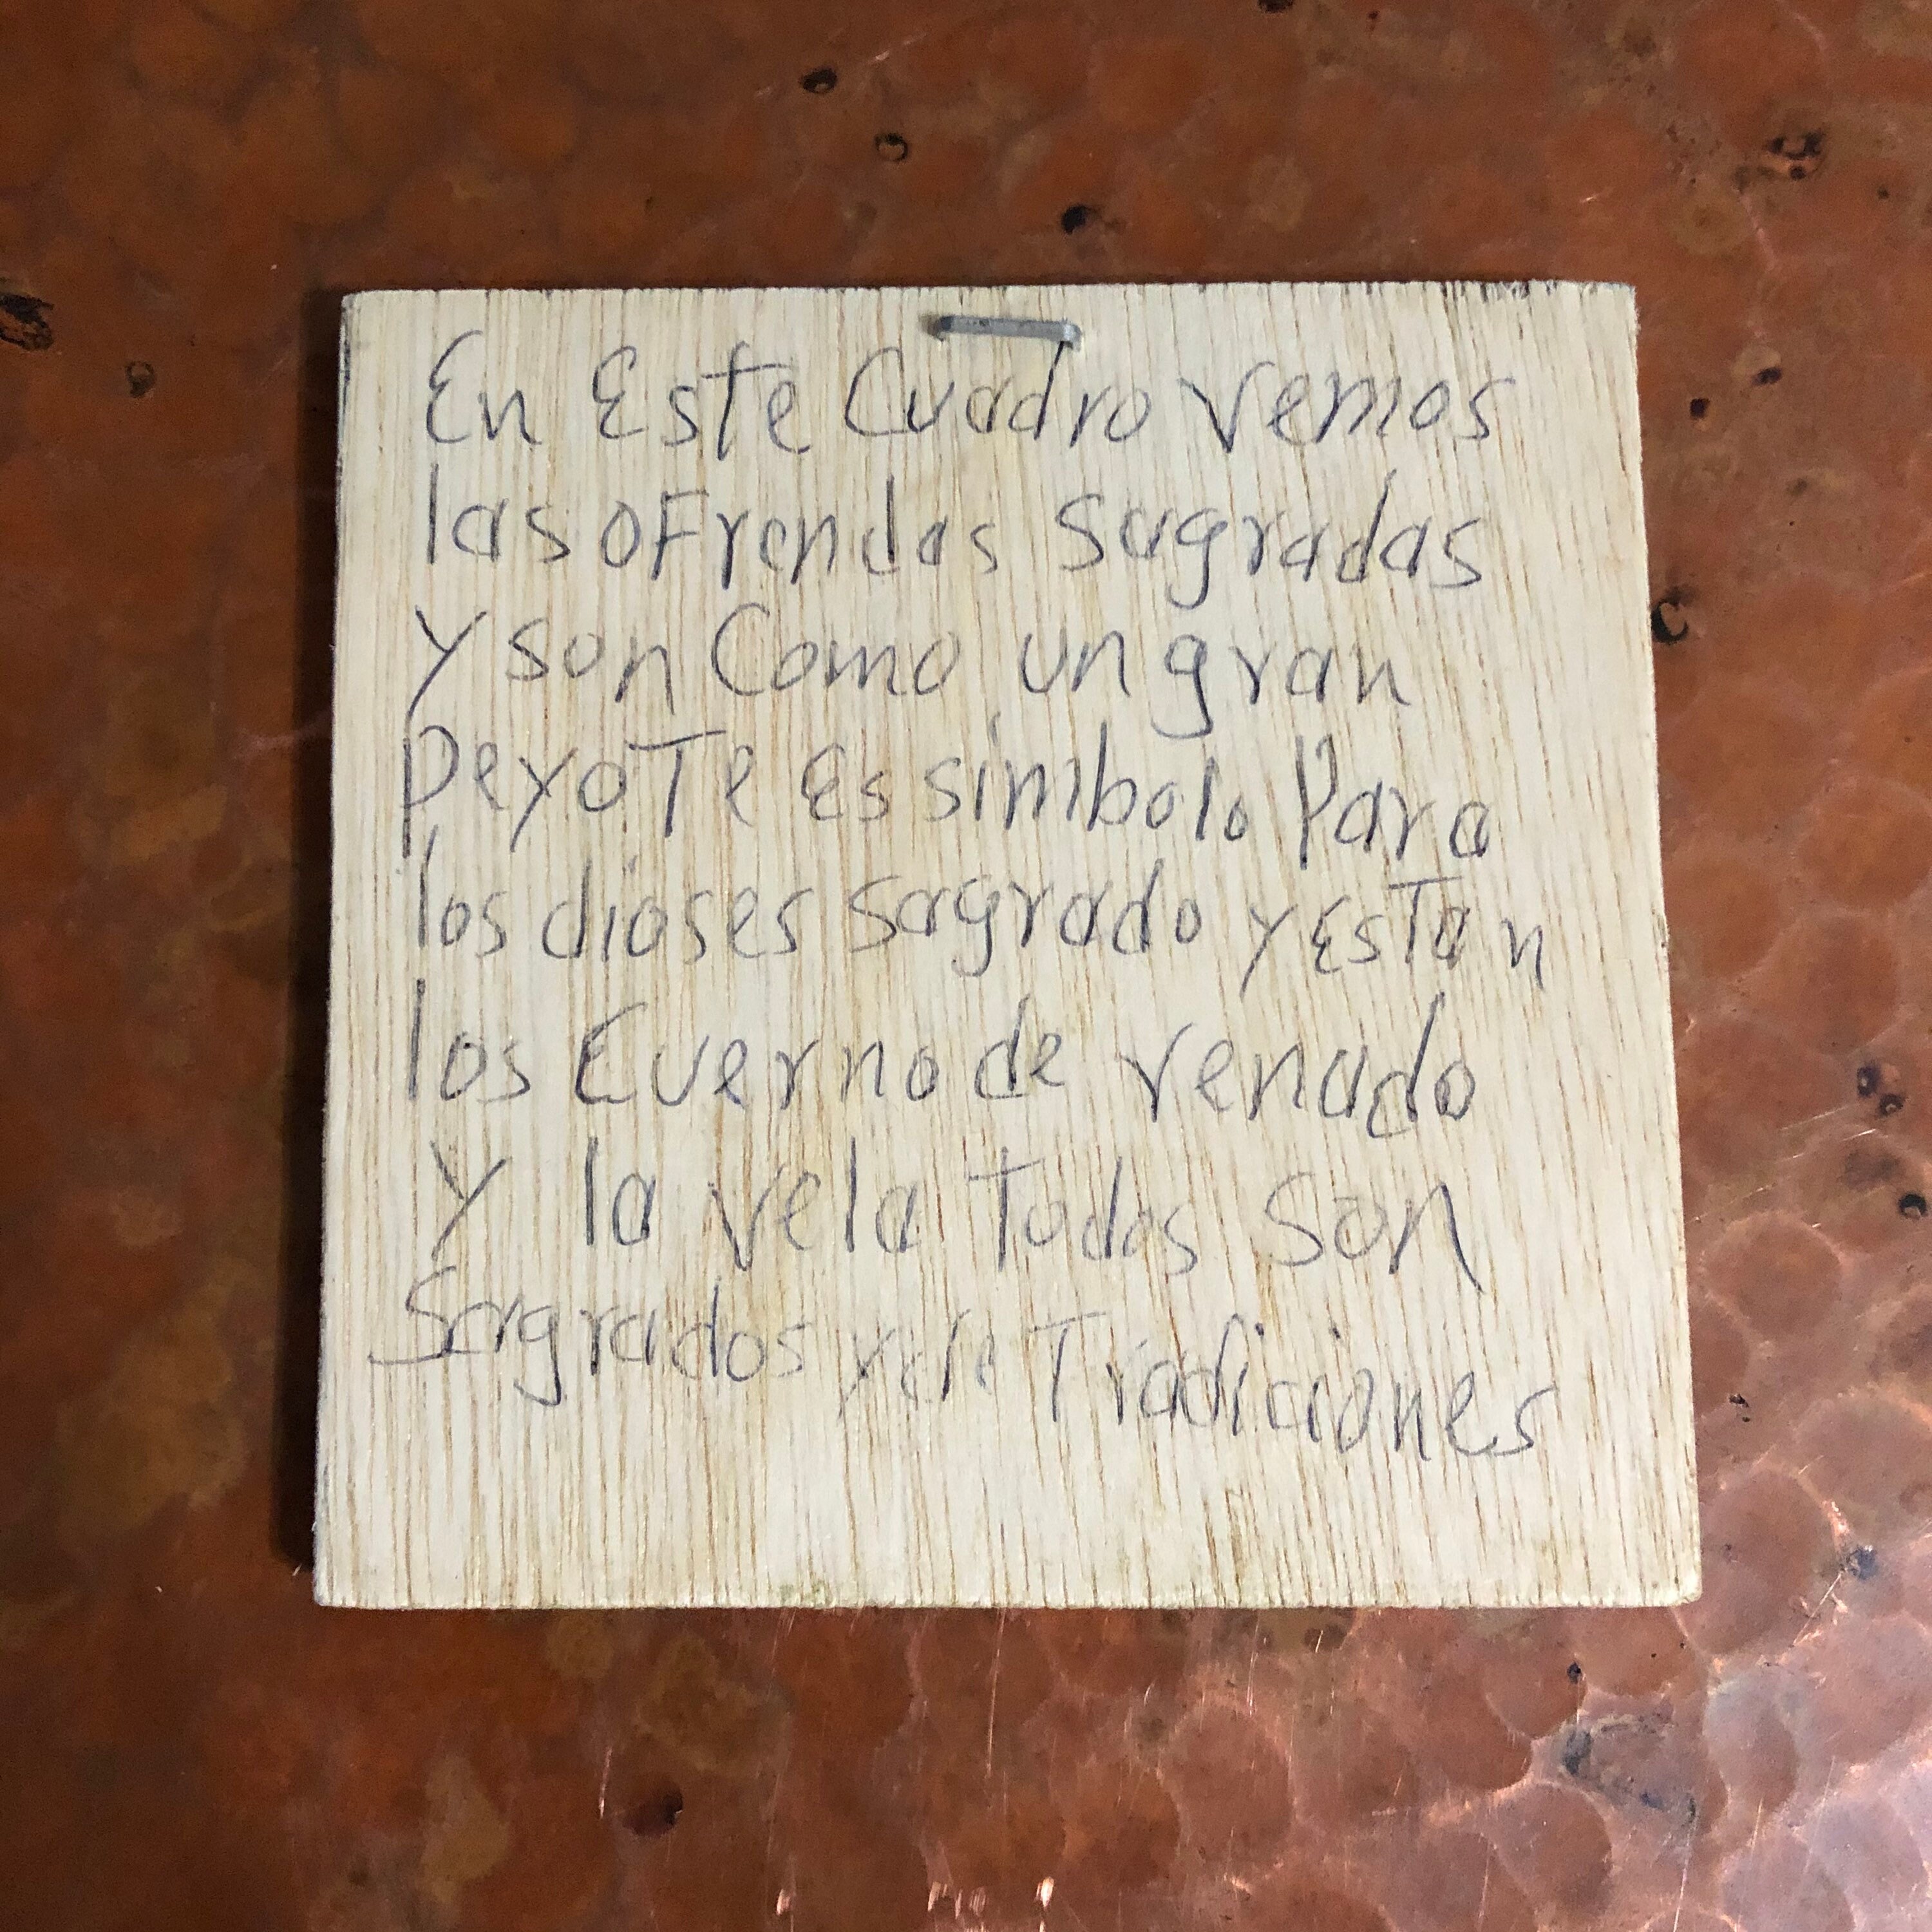 En Este Cuadro vemos
las oFrendas Sagradas
y son Como un gran
peyoTe Es simbolo Para
los dioses sagrado y EsTan
los Cuerno de venado
y la vela Todos son
Sagrados y de Tradiciones